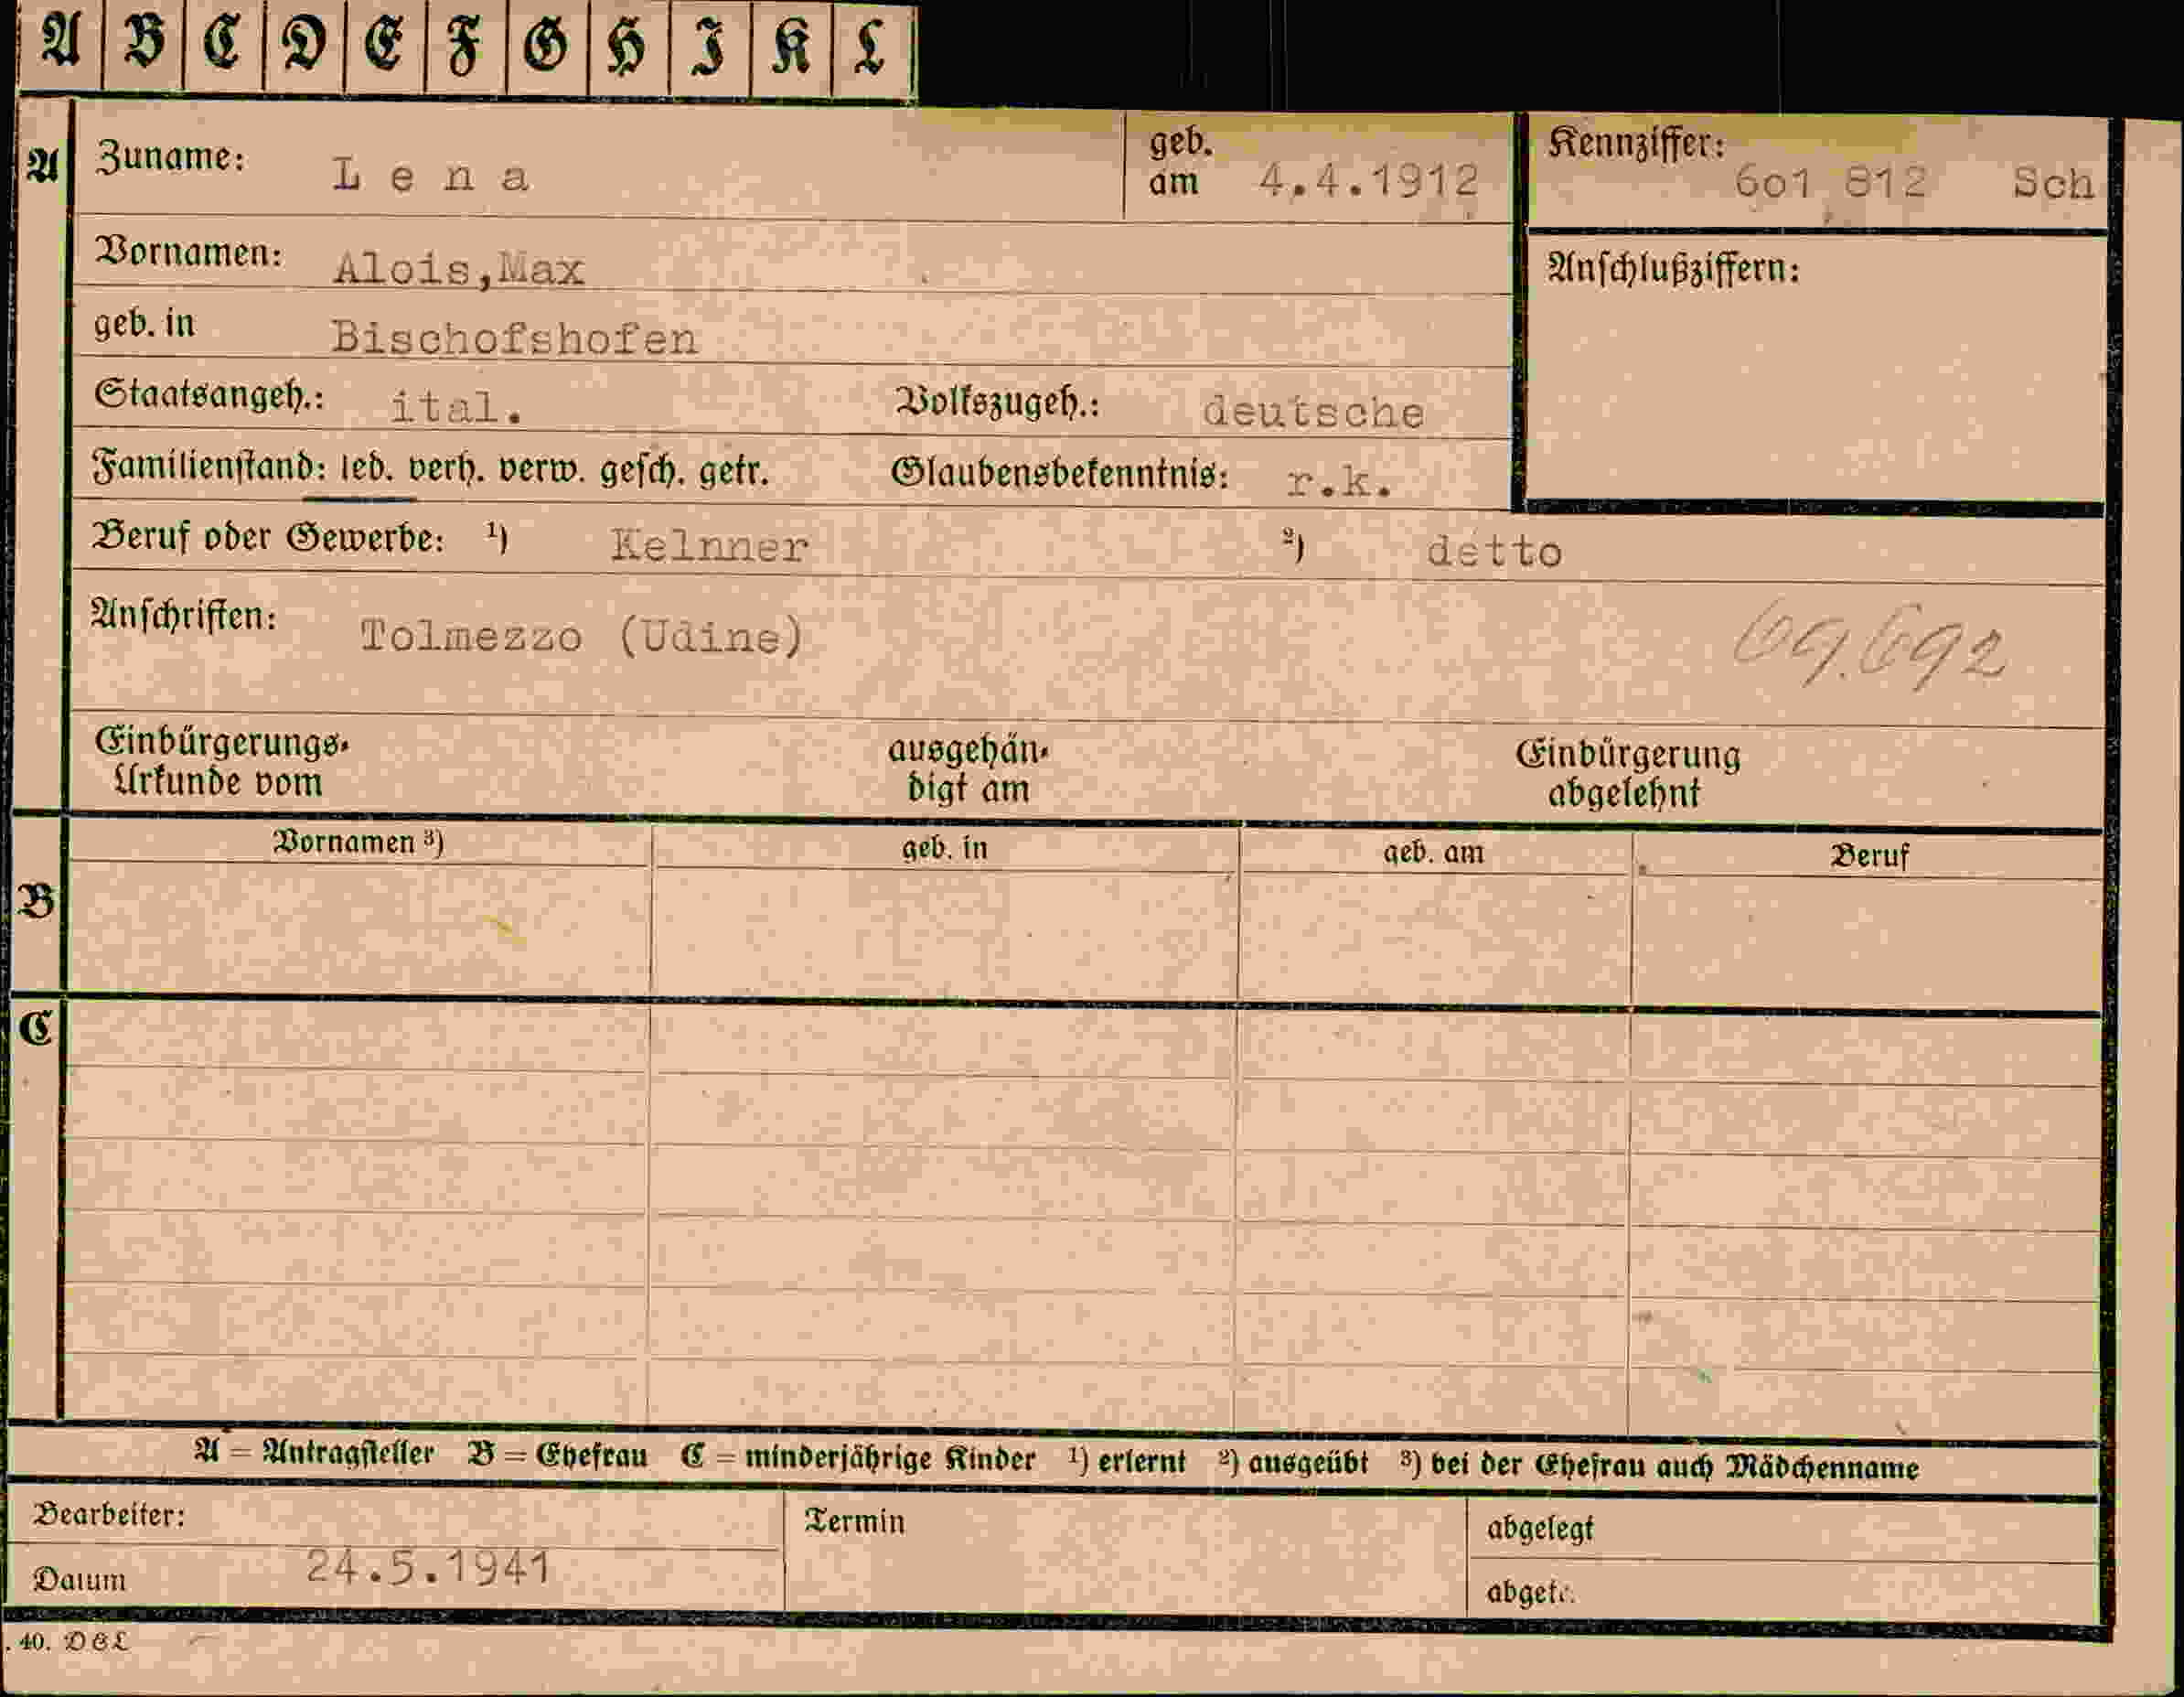 A B C D E F G H I K L
A Zuname: Lena geb. am 4.4.1912 Kennziffer: 6o1 812 Sch
Vornamen: Alois,Max Anschlußziffern:
geb. in Bischofshofen
Staatsangeh.: ital. Volkszugeh.: deutsche
Familienstand: led. verh. verw. gesch. getr. Glaubensbekenntnis: r.k.
Beruf oder Gewerbe: ¹) Kelnner ²) detto
Anschriften: Tolmezzo (Udine) 69.692
Einbürgerungs- ausgehän- Einbürgerung
Urkunde vom digt am abgelehnt
Vornamen ³) geb. in geb. am Beruf
B
C
A = Antragsteller B = Ehefrau C = minderjährige Kinder ¹) erlernt ²) ausgeübt ³) bei der Ehefrau auch Mädchenname
Bearbeiter: Termin abgelegt
Datum 24.5.1941 abgetr.
. 40. DGL